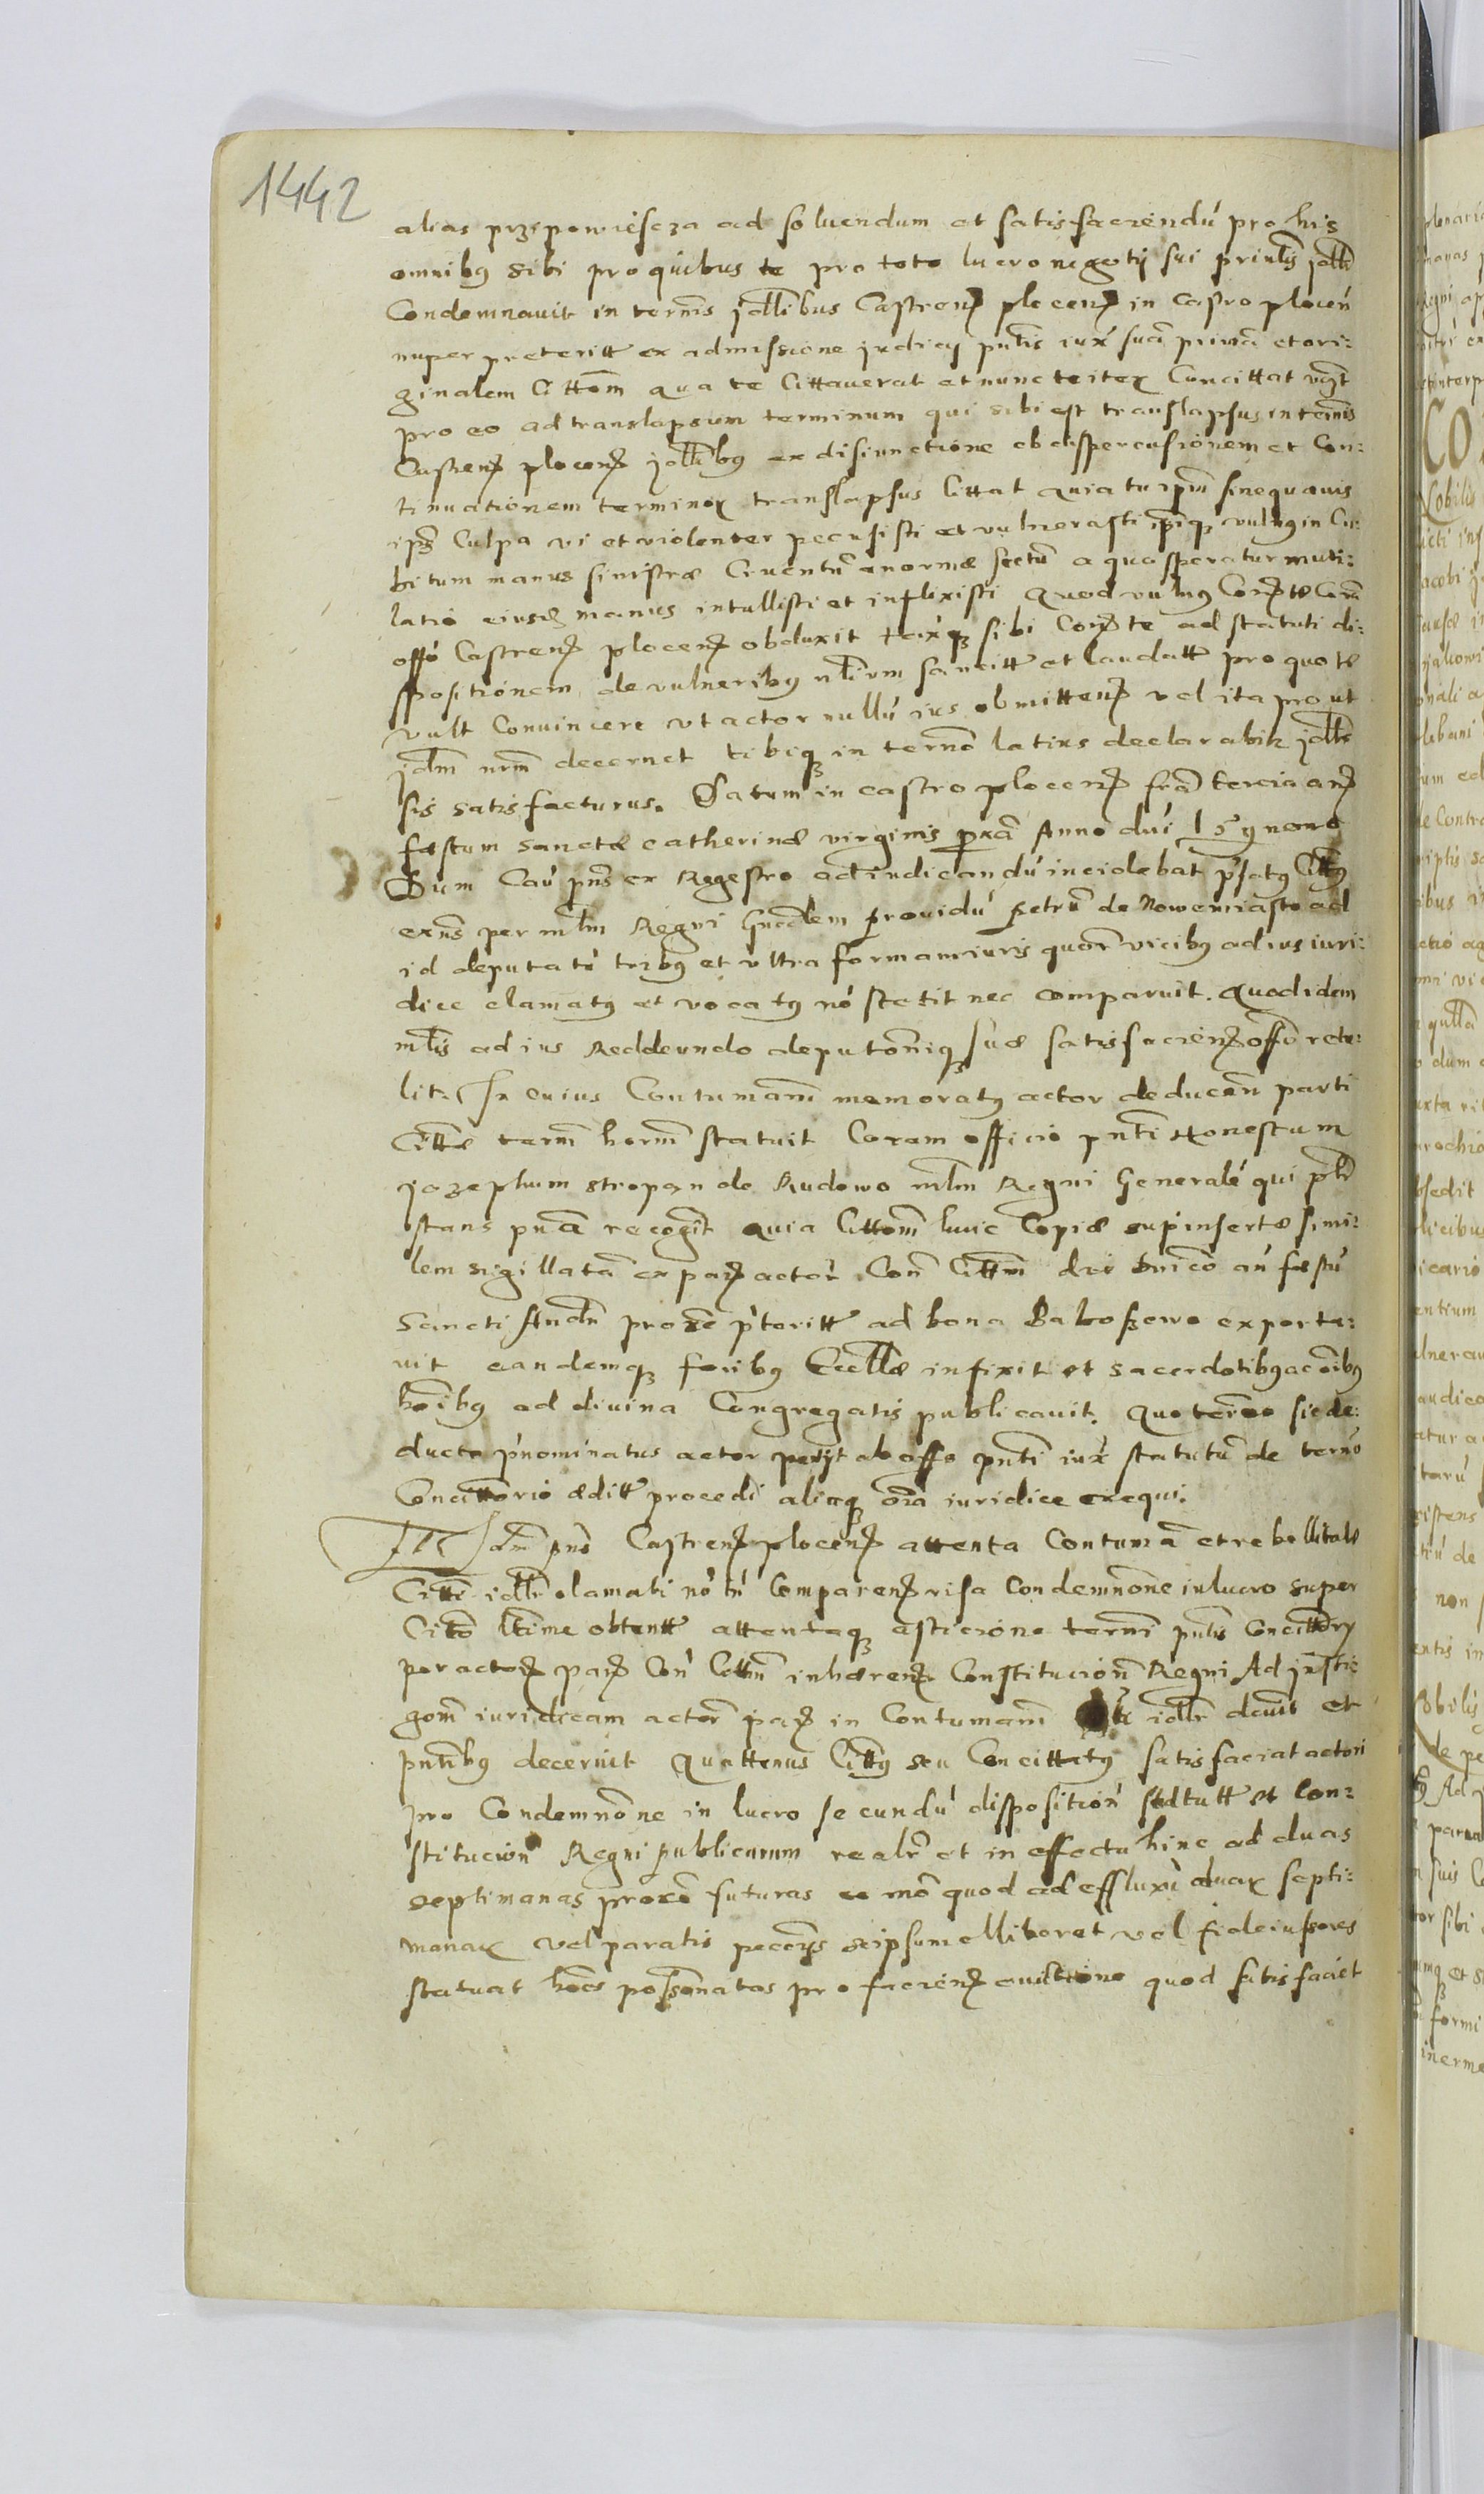 1442
alias przepowiescza ad soluendum et satisfaciendú pro his
omnibꝯ sibi pro quibus te pro toto lucro negotij sui prin̄lis jdlr̄
Condemnauit in termīs jdllibus Castren̄ plocen̄ in castro plocen̄
nuper preteritt ex admissione judicij pn̄tis iux̄ suā primā et ori:
ginalem Cittōm qua te Cittauerat et nunc te iter Concittat vz̄
pro eo ad translapsum terminum qui sibi est translapsus in termīs
Castren̄ plocen̄ jdllibꝯ ex disiunctione ob dispercusionem et Con:
tinuationem terminoꝝ translapsus Cittat quia tu ipm̄ sine quauis
ips̄ Culpa vi et violenter percusisti et vulnerasti ipiqꝫ vulnꝯ in Cu:
bitum manus sinistræ Cruentū enormæ sectū a quo speratur muti:
latio eiusdꝫ manus intullisti et inflixisti Quod vulnꝯ Corā te Corā
offō Castren̄ plocen̄ obduxit taxqꝫ sibi Corā te ad statuti di:
spositionem de vulneribꝯ nlium sancitt et laudatt pro quo te
vult Conuincere vt actor nullū ius obmitten̄ vel ita prout
jdm̄ nrm̄ decernet tibiqꝫ in termō latius declarabit jdllr
sis satisfacturus. Datum in castro plocen̄ frā tercia an̄
festum sanctæ catherinæ virginis pxā Anno dni̅ nono
Dum Caū pn̄s ex Regestro ad iudicandú inciolebat p̄fatꝯ Cittꝯ
exn̄s per mlm̄ Regni Gn̄alem prouidú petrū de Nowemiasto ad
id deputatú tribꝯ et vltra formam iuris quatr̄ vicibꝯ ad ius iuri:
dice clamatꝯ et vocatꝯ nō stetit nec comparuit. Quod idem
mlis ad ius Reddeundo deputōniqꝫ suæ satisfacien̄ offō retu:
lit. In cuius Contumām memoratꝯ actor deducen̄ parti
Cittæ term̄ horm̄ statuit Coram officio pn̄ti Honestum
jozephum stropan de Rudowo mlm̄ Regni Generalē qui pr̄
stans pn̄ā recogīt quia Cittōm huic Copiæ sup̄insertæ simi:
lem sigillatā ex par̄ actor̄ Con̄ Cittm̄ die dn̄ico an̄ festū
Sancti Andr̄ proxē p̄teritt ad bona Baboszewo exporta:
uit eandemqꝫ foribꝯ Eccllæ infixit et sacerdotibꝯ ac oībꝯ
hoībꝯ ad diuina Congregatis publicauit. Quo termō sic de:
ducto p̄nominatus actor petijt ab offō pn̄ti iux̄ statutū de termō
Concittorio æditt procedi aliaqꝫ oīa iuridice exequi.
Et Jdm̄ pn̄s Castren̄ plocen̄ attenta Contumā et rebellitate
Citti jdllr clamati nō tn̄ Comparen̄ visa Condemnōne in lucro super
Cittō ltime obtentt attentaqꝫ asticione termi pn̄tis Concittory
per actor̄ par̄ Con̄ Cittm̄ inhæren̄ Constitucion̄ Regni Ad jnsti:
gōm iuridicam actor̄ par̄ in Contumām Citti jdllr deuit et
pn̄tibꝯ decernit Quattenus Cittꝯ seu Concittatꝯ satisfaciat actori
pro Condemnōne in lucro secundú disposition̄ statutt et Con:
stitucion̄ Regni publicarum realr̄ et in effectu hinc ad duas
septimanas proxē futuras eo mō quod ad effluxū duaꝝ septi:
manaꝝ vel paratis pecunijs seipsum elliberet vel fideiussores
statuat hoēs possōnatos pro facien̄ euictione quod satisfaciet